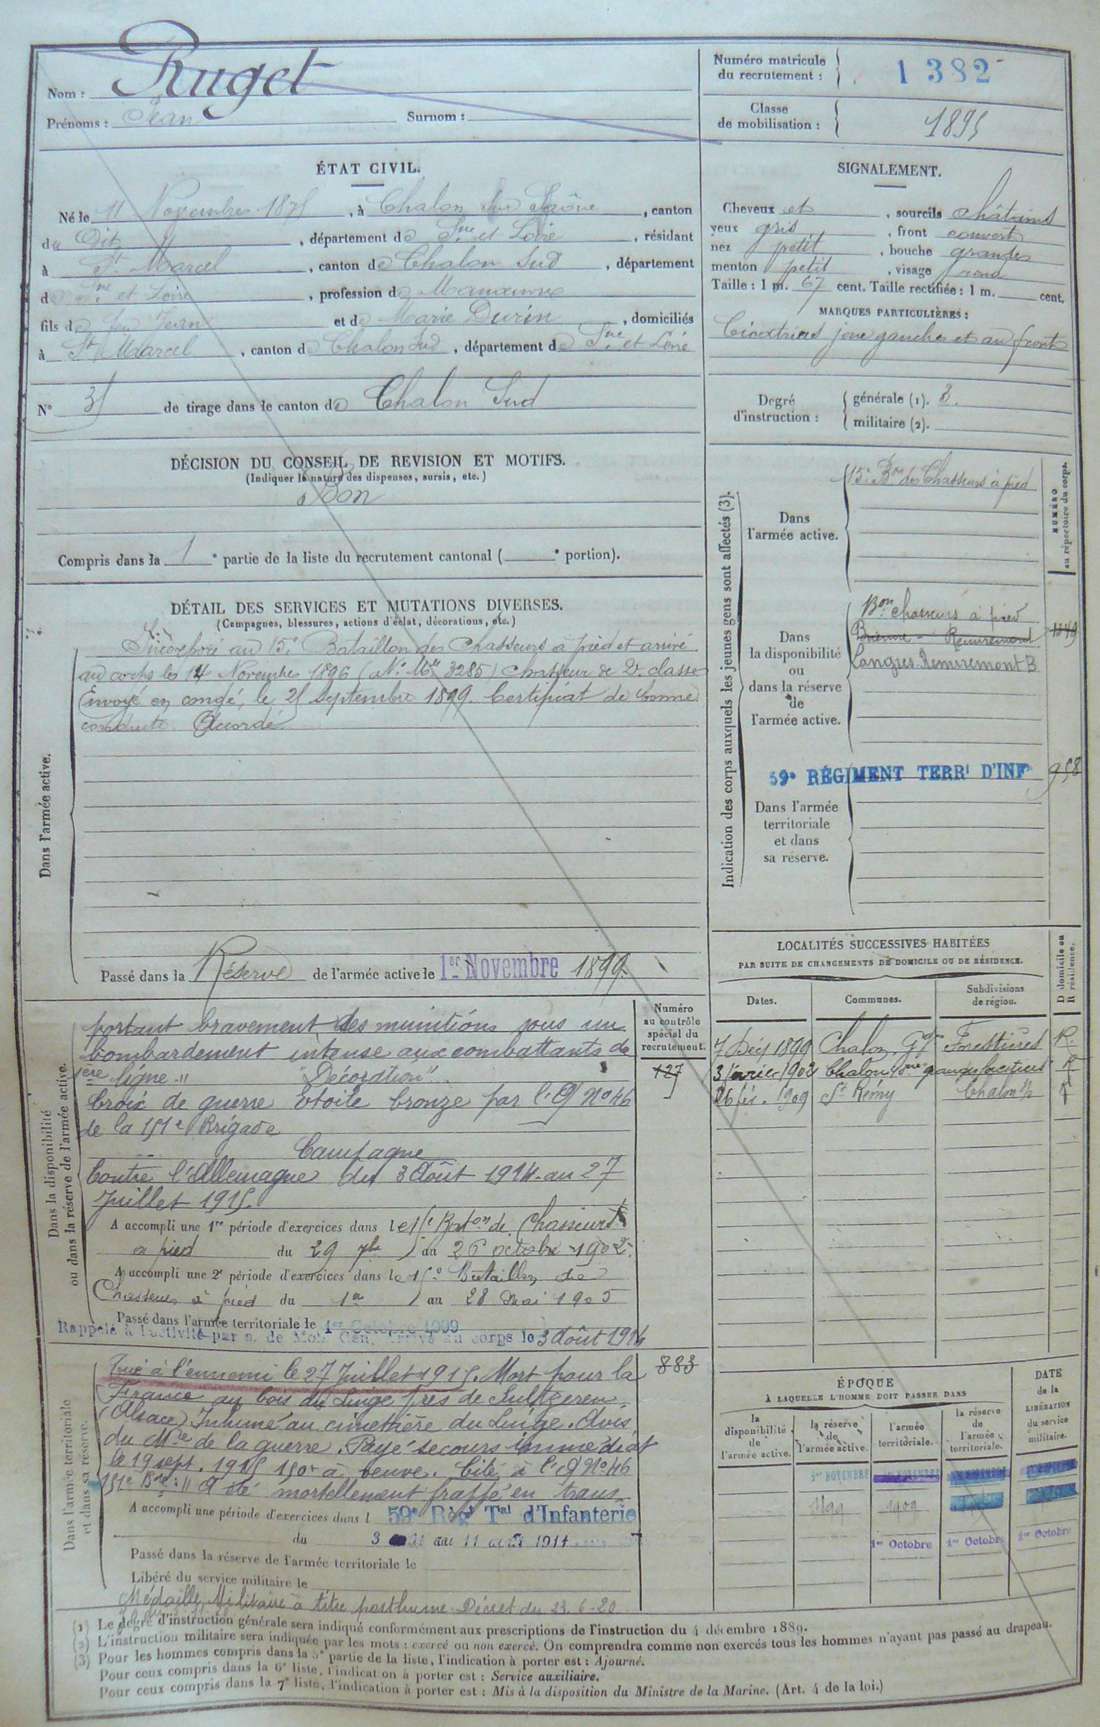 Nom : Ruget
Prénoms : Jean Surnom :
Numéro matricule du recrutement : 1382
Classe de mobilisation : 1895
ÉTAT CIVIL.
Né le 11 Novembre 1875, à Chalon sur Saône, canton
du Dit, département de Sne et Loire, résidant
à St Marcel, canton de Chalon Sud, département
de Sne et Loire, profession de Manœuvre
fils de feu Jean et de Marie Durin, domiciliés
à St Marcel, canton de Chalon Sud, département de Sne et Loire
N° 31 de tirage dans le canton de Chalon Sud
SIGNALEMENT.
Cheveux et, sourcils châtains
yeux gris, front couvert
nez petit, bouche grande
menton petit, visage rond
Taille : 1 m. 67 cent. Taille rectifiée : 1 m. cent.
MARQUES PARTICULIÈRES :
Cicatrices joue gauche et au front
Degré d'instruction : générale (1). 3.
militaire (2).
DÉCISION DU CONSEIL DE REVISION ET MOTIFS.
(Indiquer la nature des dispenses, sursis, etc.)
Bon
Compris dans la 1e partie de la liste du recrutement cantonal ( e portion).
DÉTAIL DES SERVICES ET MUTATIONS DIVERSES.
(Campagnes, blessures, actions d'éclat, décorations, etc.)
Dans l'armée active.
Incorporé au 15e Bataillon des Chasseurs à pied et arrivé
au corps le 14 Novembre 1896 (N° Mle 3285) Chasseur de 2e classe
Envoyé en congé, le 21 Septembre 1899. Certificat de bonne
conduite Accordé
Passé dans la Réserve de l'armée active le 1er Novembre 1899.
Indication des corps auxquels les jeunes gens sont affectés (3).
NUMÉRO au répertoire du corps.
Dans l'armée active.
15e Bon des Chasseurs à pied
Dans la disponibilité ou dans la réserve de l'armée active.
Bon chasseurs à pied
Brienne - Remiremont
Langres Remiremont B
59e RÉGIMENT TERRl D'INFie 958
Dans l'armée territoriale et dans sa réserve.
LOCALITÉS SUCCESSIVES HABITÉES
PAR SUITE DE CHANGEMENTS DE DOMICILE OU DE RÉSIDENCE.
Dates. Communes. Subdivisions de région. D domicile ou R résidence.
7 Déc 1899 Chalon Forestières R
3 février 1902 Chalon
26 fév. 1909 St Rémy Chalon
Numéro au contrôle spécial du recrutement.
127
Dans la disponibilité ou dans la réserve de l'armée active.
portant bravement des munitions sous un
bombardement intense aux combattants de
1ère ligne." "Décoration"
Croix de guerre étoile bronze par l'O N° 46
de la 151e Brigade
Campagne
Contre l'Allemagne du 3 Août 1914 au 27
Juillet 1915.
A accompli une 1re période d'exercices dans le 15e Baton de Chasseurs
à pied du 29 7bre au 26 octobre 1902.
A accompli une 2e période d'exercices dans le 15e Bataillon de
Chasseurs à pied du 1er au 28 mai 1905
Passé dans l'armée territoriale le 1er Octobre 1909
Rappelé à l'activité par o. de Mob. Gén. Arrivé au corps le 3 Août 1914
Dans l'armée territoriale et dans sa réserve.
883
Tué à l'ennemi le 27 Juillet 1915. Mort pour la
France au bois du Linge près de Sultzeren
(Alsace) Inhumé au cimetière du Linge. Avis
du Mre de la guerre. Payé secours immédiat
le 19 sept. 1915 150f à veuve. Cité à l'O N° 46
151e Bde : " A été mortellement frappé en trans-
A accompli une période d'exercices dans l 59e Régt Tal d'Infanterie
du 3 au 11 août 1914
Passé dans la réserve de l'armée territoriale le
Libéré du service militaire le
Médaille Militaire à titre posthume Décret du 23-6-20
ÉPOQUE
À LAQUELLE L'HOMME DOIT PASSER DANS
DATE de la LIBÉRATION du service militaire.
la disponibilité de l'armée active. la réserve de l'armée active. l'armée territoriale. la réserve de l'armée territoriale.
1er NOVEMBRE
1899 1909
1er Octobre 1er Octobre 1er Octobre
(1) Le degré d'instruction générale sera indiqué conformément aux prescriptions de l'instruction du 4 décembre 1889.
(2) L'instruction militaire sera indiquée par les mots : exercé ou non exercé. On comprendra comme non exercés tous les hommes n'ayant pas passé au drapeau.
(3) Pour les hommes compris dans la 5e partie de la liste, l'indication à porter est : Ajourné.
Pour ceux compris dans la 6e liste, l'indication à porter est : Service auxiliaire.
Pour ceux compris dans la 7e liste, l'indication à porter est : Mis à la disposition du Ministre de la Marine. (Art. 4 de la loi.)